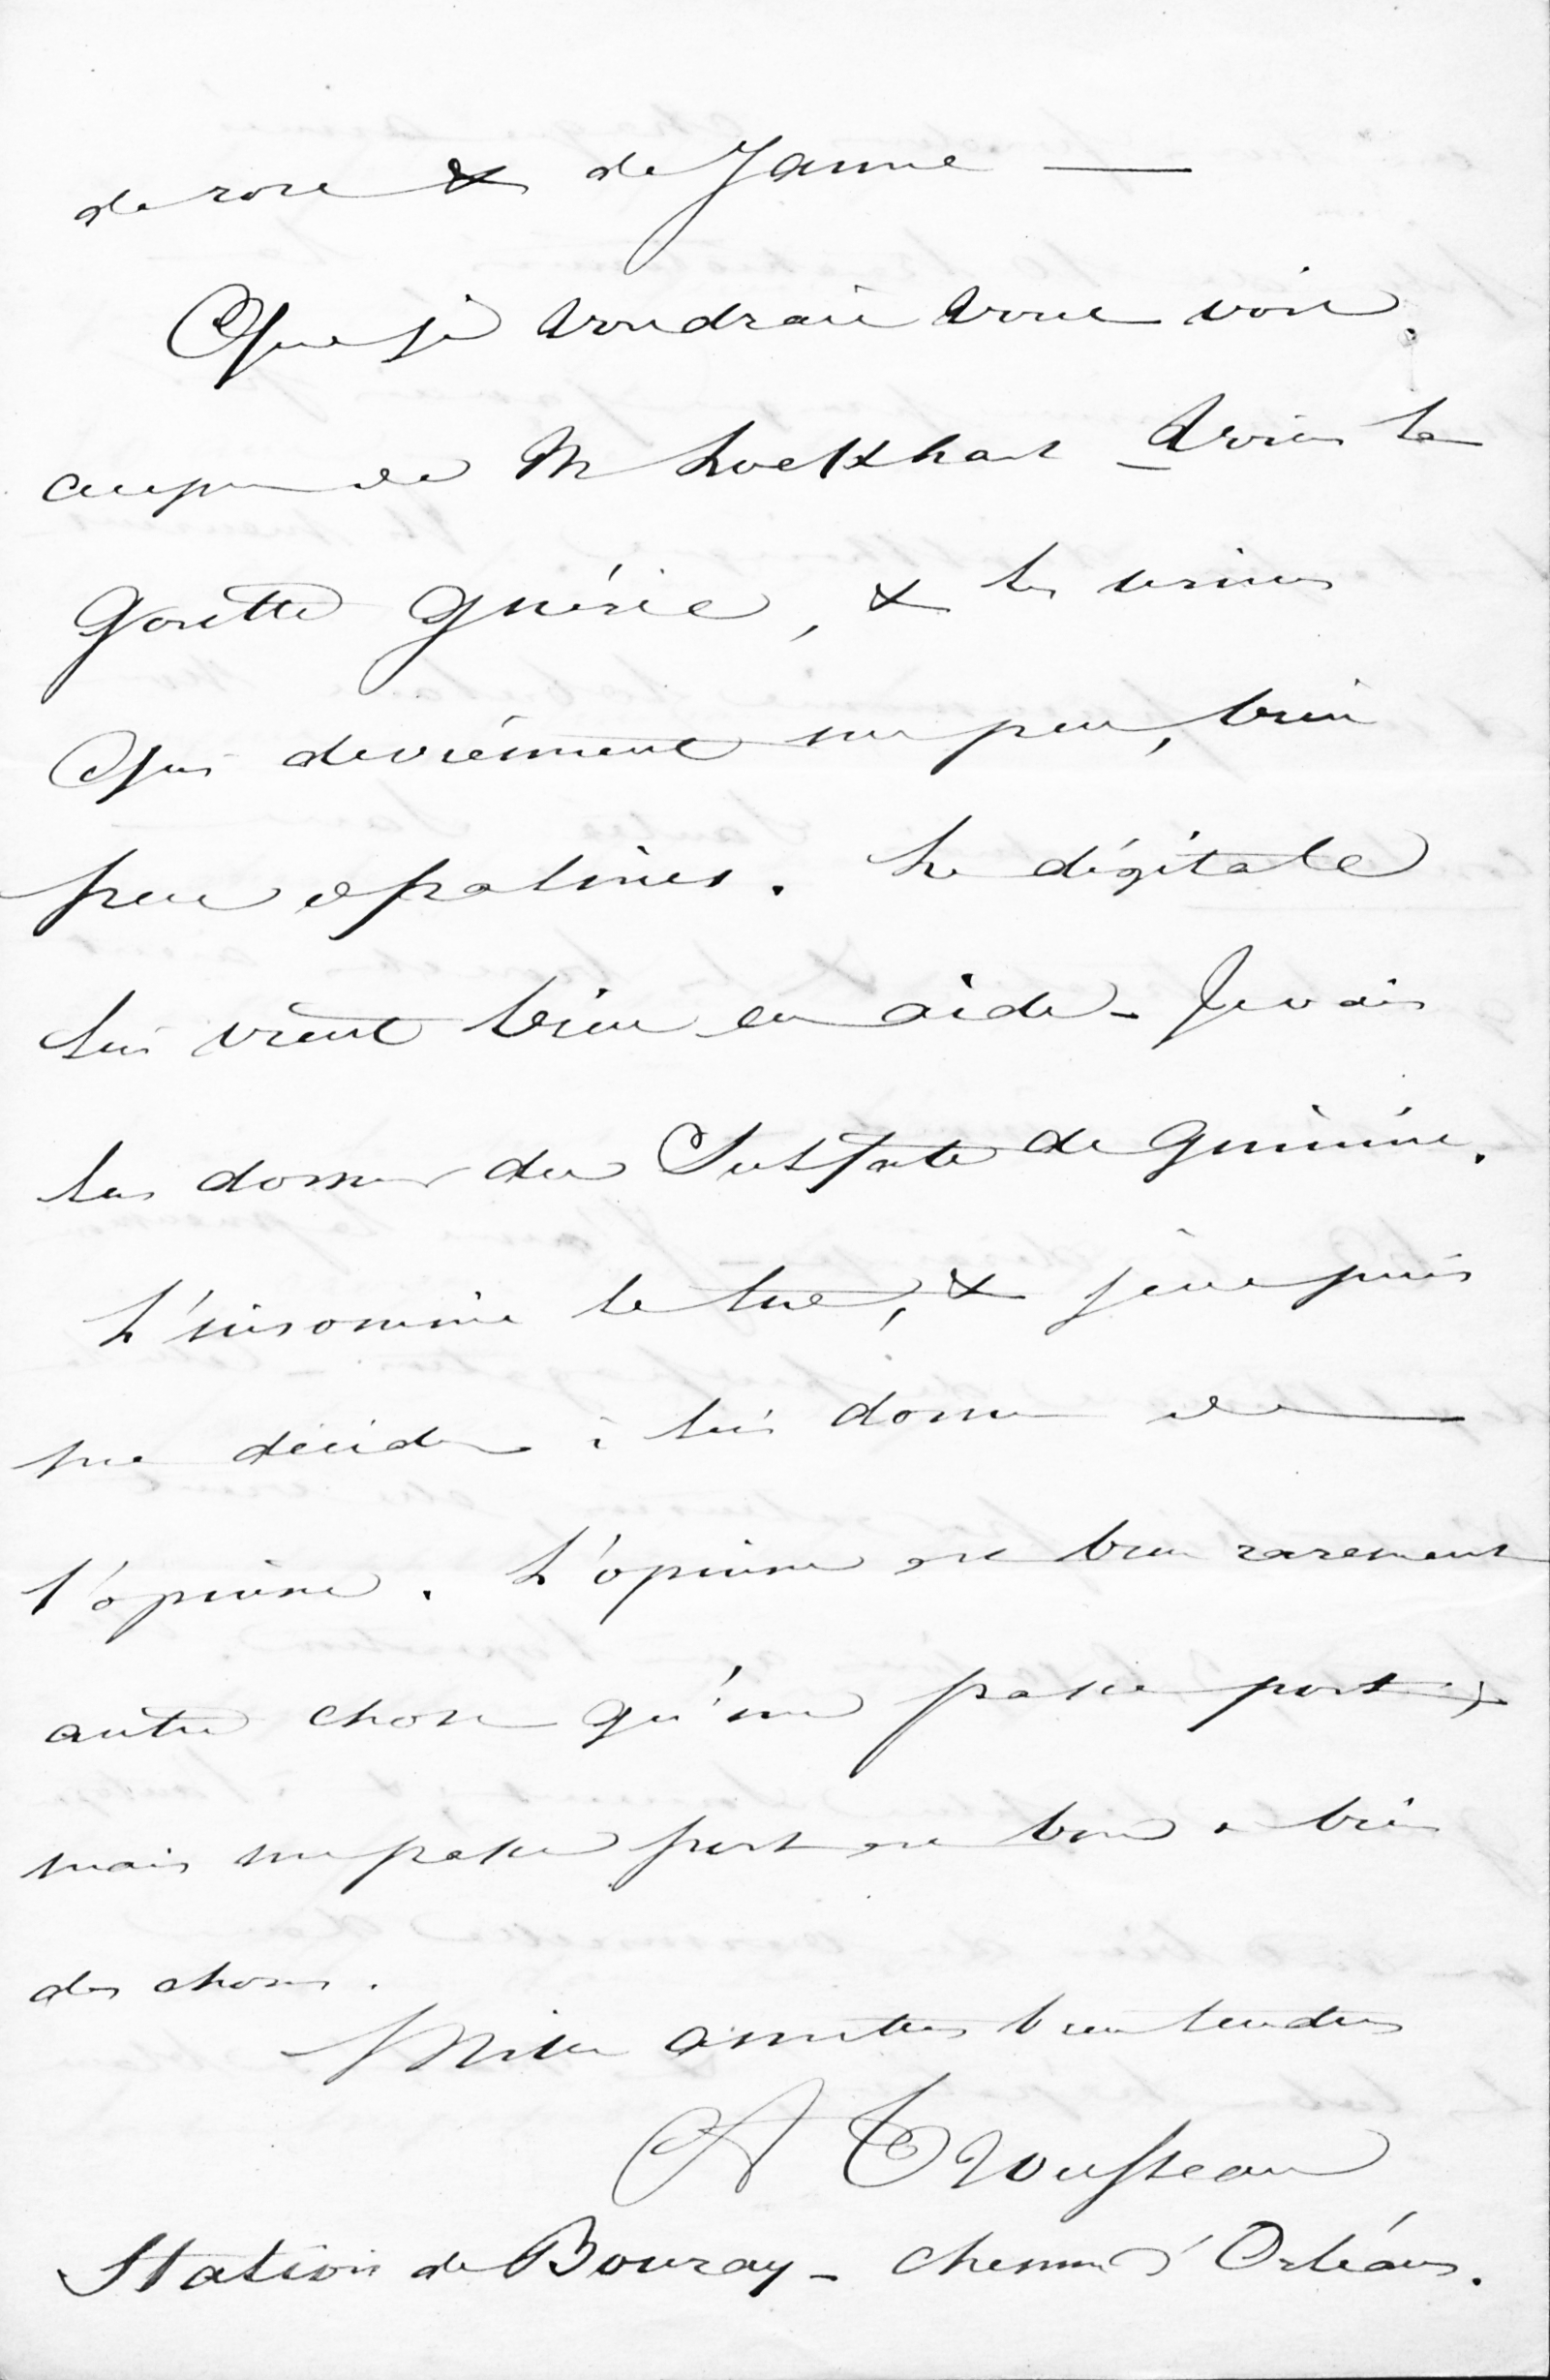 de rose & de Jaune —
Que je voudrais vous voir
auprès de M Lockhart – Voici la
Goutte Guérie, & les urines
Qui deviennent un peu, bien
peu opalines. La digitale
lui vient bien en aide – Je vais
lui donner du Sulfate de quinine.
L'insomnie le tue, & je ne puis
me décider à lui donner de
l'opium. L'opium est bien rarement
autre chose qu'un passe port;
mais un passe port est bon à bien
des choses.
Mille amitiés bien tendres
A Trousseau
Station de Bouray – chemin d'Orléans.